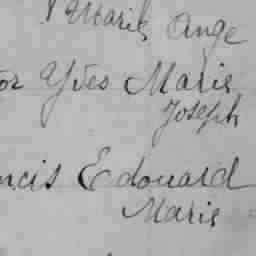 Marie Ange
or Yves Marie
Joseph
ncis Edouard
Marie